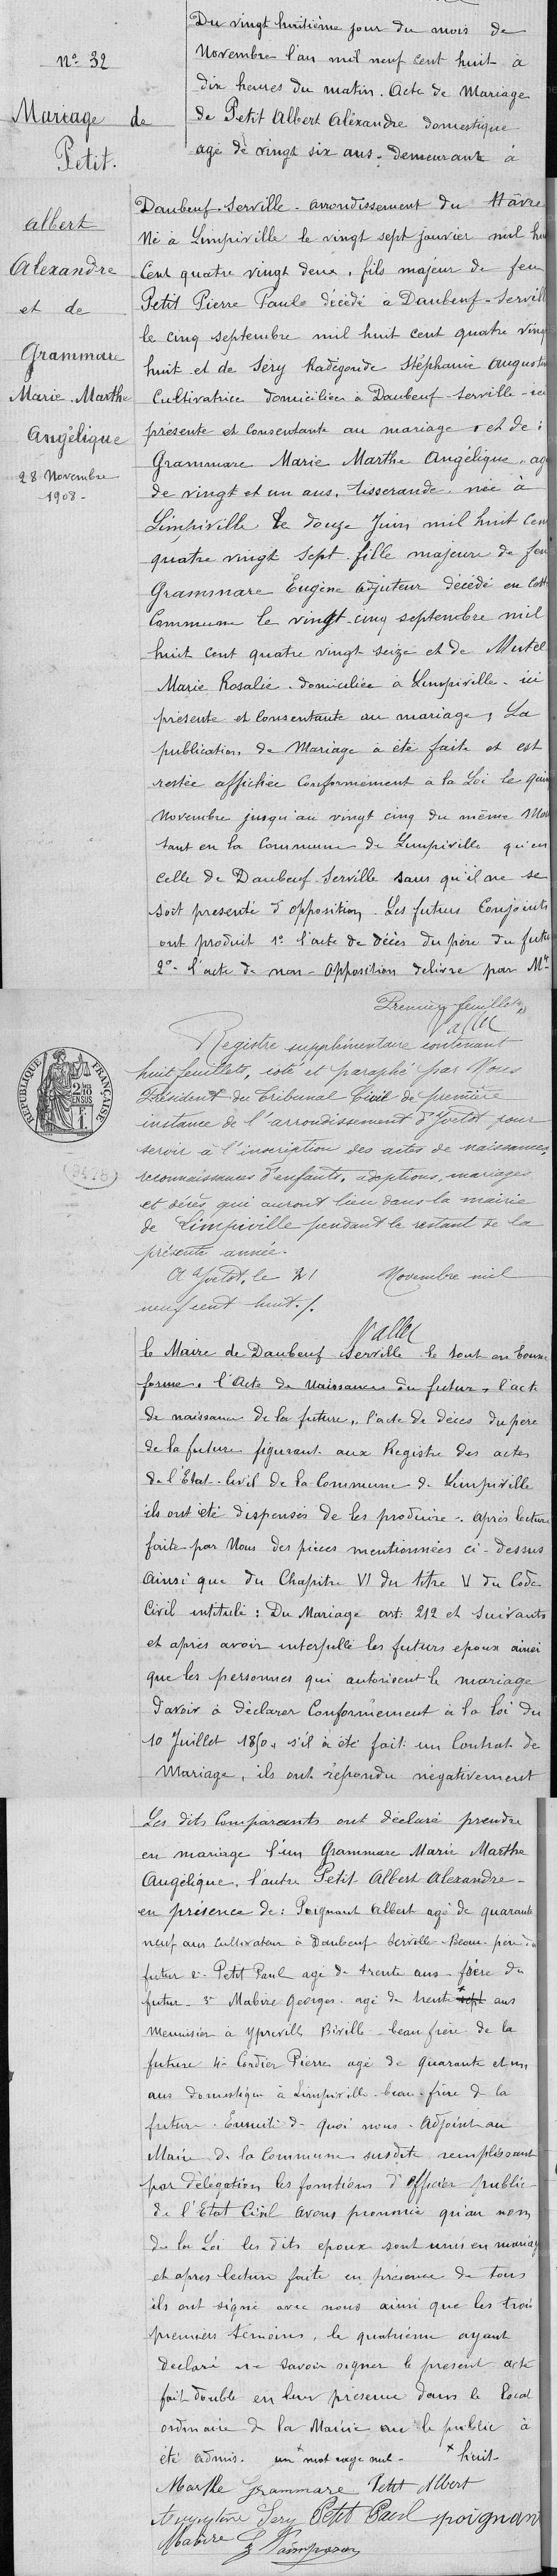 Du vingt huitième jour du mois de
Novembre l'an mil neuf cent huit à
dix heures du matin. Acte de Mariage
de Petit Albert Aléxandre domestique
agé de vingt six ans - demeurant à
n° 32
Mariage de
Petit.
Albert
Alexandre
et de
Grammare
Marie Marthe
Angélique
28 Novembre
1908 -
Daubeuf-Serville - arrondissement du Hâvre
Né à Limpiville le vingt sept janvier mil hui
Cent quatre vingt deux, fils majeur de feu
Petit Pierre Paul décédé à Daubeuf-Servill
le cinq septembre mil huit cent quatre ving
huit et de Séry Radégonde Stéphanie Augustin
Cultivatrice domiciliée à Daubeuf-Serville - ici
présente et consentante au mariage, et de :
Grammare Marie Marthe Angélique, ag
de vingt et un ans, tisserande, née à
Limpiville le douze Juin mil huit cen
quatre vingt sept. fille majeure de feu
Grammare Eugène Adjuteur décédé en cette
Commune le vingt-cinq septembre mil
huit cent quatre vingt seize et de Mutel
Marie Rosalie - domiciliée à Limpiville - ici
présente et consentante au mariage, La
publication de Mariage a été faite et est
restée affichée Conformément à la Loi le quin
Novembre jusqu'au vingt cinq du même Moi
tant en la Commune de Limpiville qu'en
celle de Daubeuf-Serville sans qu'il ne se
soit presenté d'opposition. Les futurs Conjoints
ont produit 1° l'acte de décès du père du futu
2° - l'acte de non-opposition delivré par Mr
Premier feuillet
Vallée
Registre supplémentaire contenant
huit feuillets, coté et paraphé par Nous
Président du Tribunal Civil de première
instance de l'arrondissement d'Yvetot pour
servir à l'inscription des actes de naissances,
reconnaissances d'enfants, adoptions, mariages
et décès qui auront lieu dans la mairie
de Limpiville pendant le restant de la
présente année.
A Yvetot, le 21 Novembre mil
neuf cent huit./.
Vallée
REPUBLIQUE FRANÇAISE
2/10 EN SUS
le Maire de Daubeuf Serville le tout en bonne
forme. l'Acte de Naissance du futur, l'acte
de naissance de la future, l'acte de décès du père
de la future figurant aux Registre des actes
de l'Etat-Civil de la Commune de Limpiville
ils ont été dispensés de les produire. Après lecture
faite par Nous des pièces mentionnées ci-dessus
ainsi que du Chapitre VI du titre V du Code
Civil intitulé : Du Mariage art. 212 et suivants
et après avoir interpellé les futurs epoux ainsi
que les personnes qui autorisent le mariage
d'avoir à déclarer Conformément à la loi du
10 Juillet 1850, s'il a été fait un Contrat de
Mariage, ils ont répondu négativement
Les dits Comparants ont déclaré prendre
en mariage l'un Grammare Marie Marthe
Angélique, l'autre Petit Albert Alexandre -
en présence de : Poignant Albert agé de quarante
neuf ans Cultivateur à Daubeuf Serville - Beau-père du
futur 2° - Petit Paul agé de trente ans - frère du
futur - 3° Mabire Georges - agé de trente * sept ans
Menuisier à Ypreville Biville beau frère de la
future 4° Cordier Pierre agé de quarante et un
ans domestique à Limpiville - beau-frère de la
future. Ensuite de quoi nous - Adjoint au
Maire de la Commune susdite remplissant
par délégation les fonctions d'officier public
de l'Etat Civil avons prononcé qu'au nom
de la Loi les dits epoux sont unis en mariag
et après lecture faite en présence de tous
ils ont signé avec nous ainsi que les trois
premiers témoins, le quatrième ayant
déclaré ne savoir signer le présent acte
fait double en leur présence dans le local
ordinaire de la Mairie ou le public à
été admis. un mot rayé nul - * huit -
Marthe Grammare Petit Albert
Augustine Sery Petit Paul poignan
Mabire